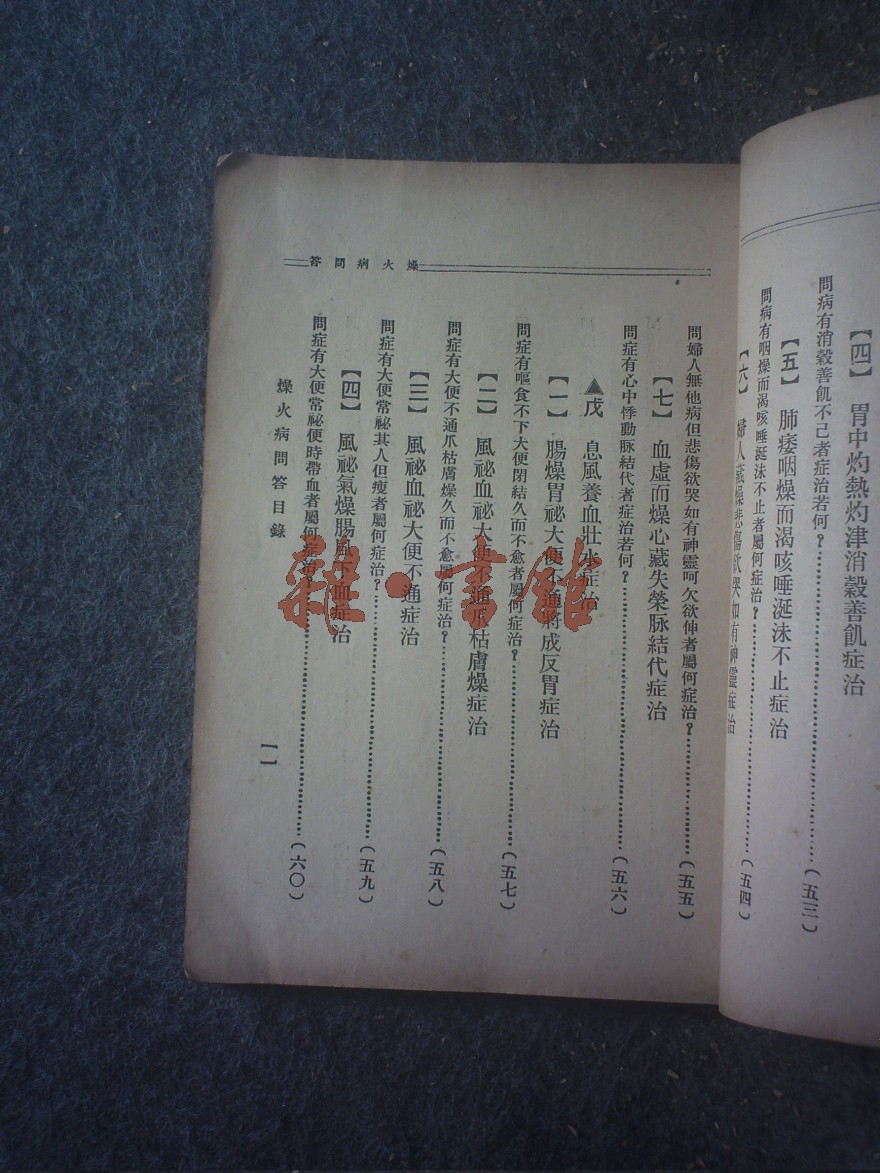 【四】 胃中灼熱灼津消穀善飢症治
問病有消穀善飢不已者症治若何?……(五三)
【五】 肺痿咽燥而渴咳唾涎沫不止症治
問病有咽燥而渴咳唾涎沫不止者屬何症治?……(五四)
【六】 婦人藏燥悲傷欲哭如有神靈症治
燥火病問答
問婦人無他病但悲傷欲哭如有神靈呵欠欲伸者屬何症治?……(五五)
【七】 血虛而燥心藏失榮脉結代症治
問症有心中悸動脉結代者症治若何?……(五六)
▲戊 息風養血壯水症治
【一】 腸燥胃祕大便不通將成反胃症治
問症有嘔食不下大便閉結久而不愈者屬何症治?……(五七)
【二】 風祕血祕大便不通爪枯膚燥症治
問症有大便不通爪枯膚燥久而不愈者屬何症治?……(五八)
【三】 風祕血祕大便不通症治
問症有大便常祕其人但瘦者屬何症治?……(五九)
【四】 風祕氣燥腸風下血症治
問症有大便常祕便時帶血者屬何症治?……(六〇)
燥火病問答目錄
一一
雜·書館